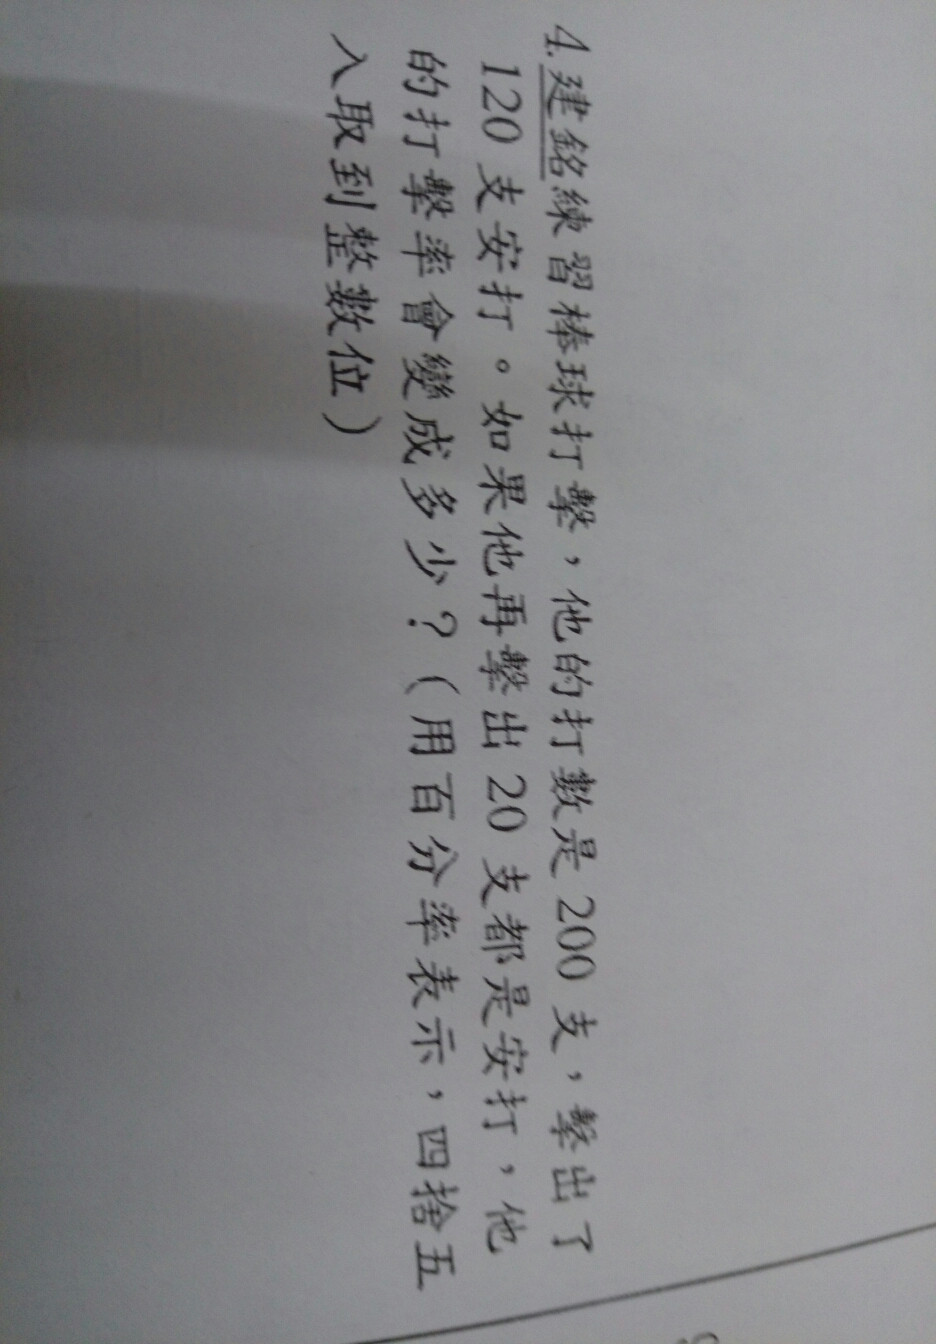 4.建銘練習棒球打擊，他的打數是200支，擊出了
120支安打。如果他再擊出20支都是安打，他
的打擊率會變成多少？（用百分率表示，四捨五
入取到整數位）